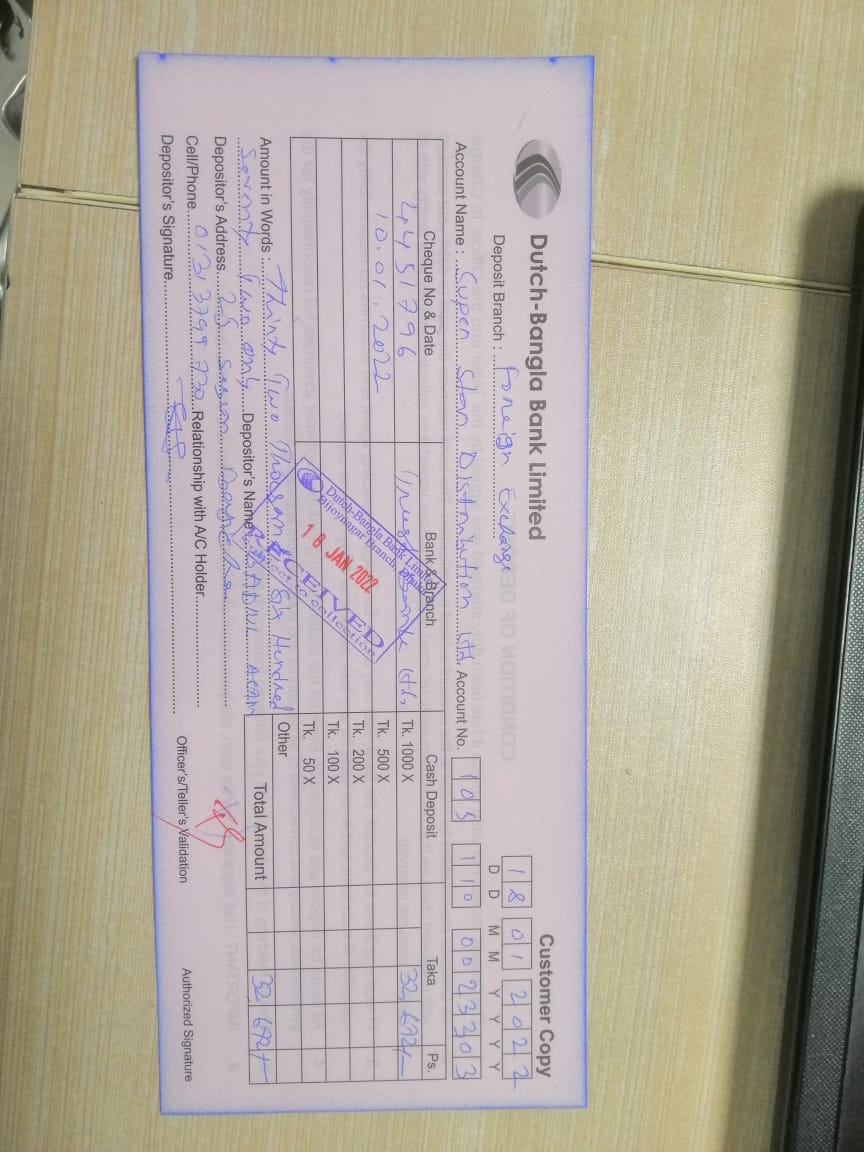 Dutch-Bangla Bank Limited
Customer Copy
Deposit Branch : Foreign Exchange
18 01 2022
D D M M Y Y Y Y
Account Name : Super Star Distribution Ltd. Account No. 105 110 0023303
Cheque No & Date Bank & Branch Cash Deposit Taka Ps.
4451796 Trust Bank Ltd, Tk. 1000 X 32,672/-
10.01.2022 Tk. 500 X
Tk. 200 X
Tk. 100 X
Tk. 50 X
Other
Dutch-Bangla Bank Limited
Bijoynagar Branch, Dhaka
18 JAN 2022
RECEIVED
Subject to collection
Amount in Words : Thirty Two Thousand Six Hundred
Seventy Two only Depositor's Name
Total Amount 32,672/-
Depositor's Address 25
Cell/Phone Relationship with A/C Holder
Depositor's Signature
Officer's/Teller's Validation
Authorized Signature